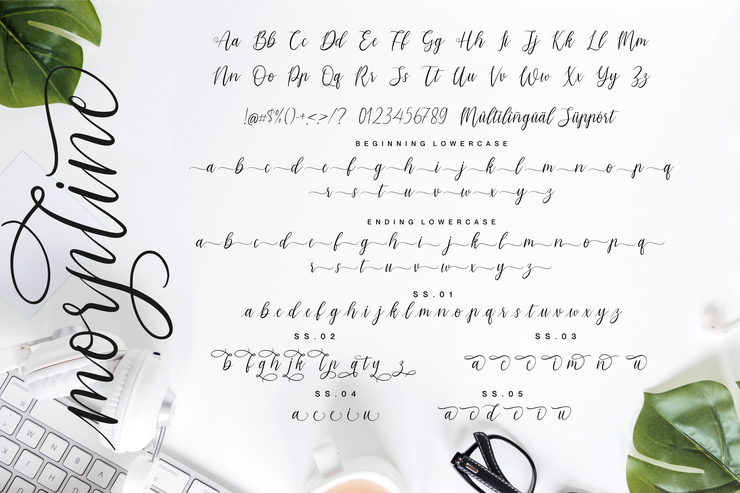 morntine
Aa Bb Cc Dd Ee Ff Gg Hh Ii Jj Kk Ll Mm
Nn Oo Pp Qq Rr Ss Tt Uu Vv Ww Xx Yy Zz
!@#$%()-+<>/? 0123456789 Mültilingüäl Süppört
BEGINNING LOWERCASE
a b c d e f g h i j k l m n o p q
r s t u v w x y z
ENDING LOWERCASE
a b c d e f g h i j k l m n o p q
r s t u v w x y z
SS.01
a b c d e f g h i j k l m n o p q r s t u v w x y z
SS.02
SS.03
SS.04
SS.05